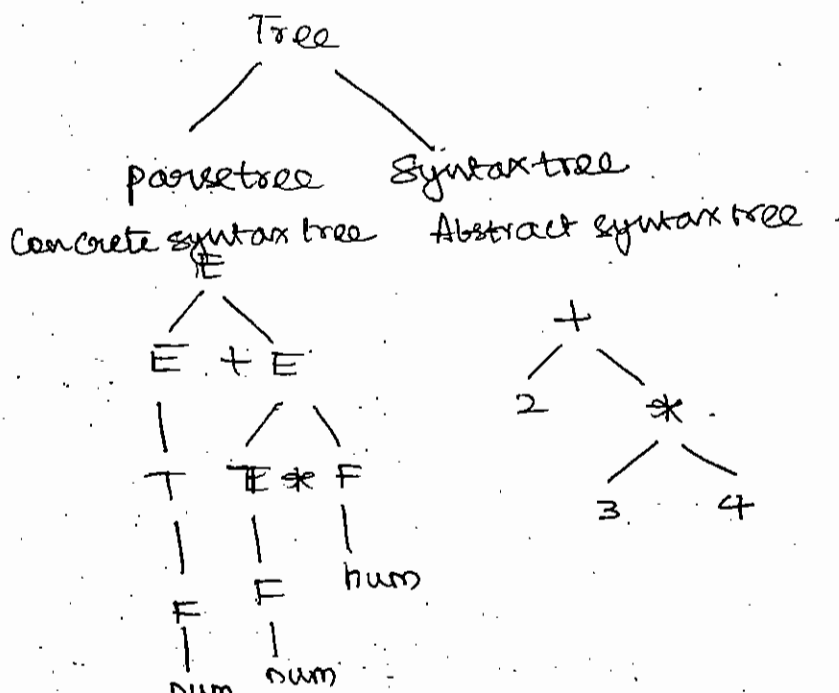 Tree
parsetree Syntaxtree
Concrete syntax tree Abstract syntax tree
E
+
E + E
2 *
T T * F
3 4
num
F F
num num